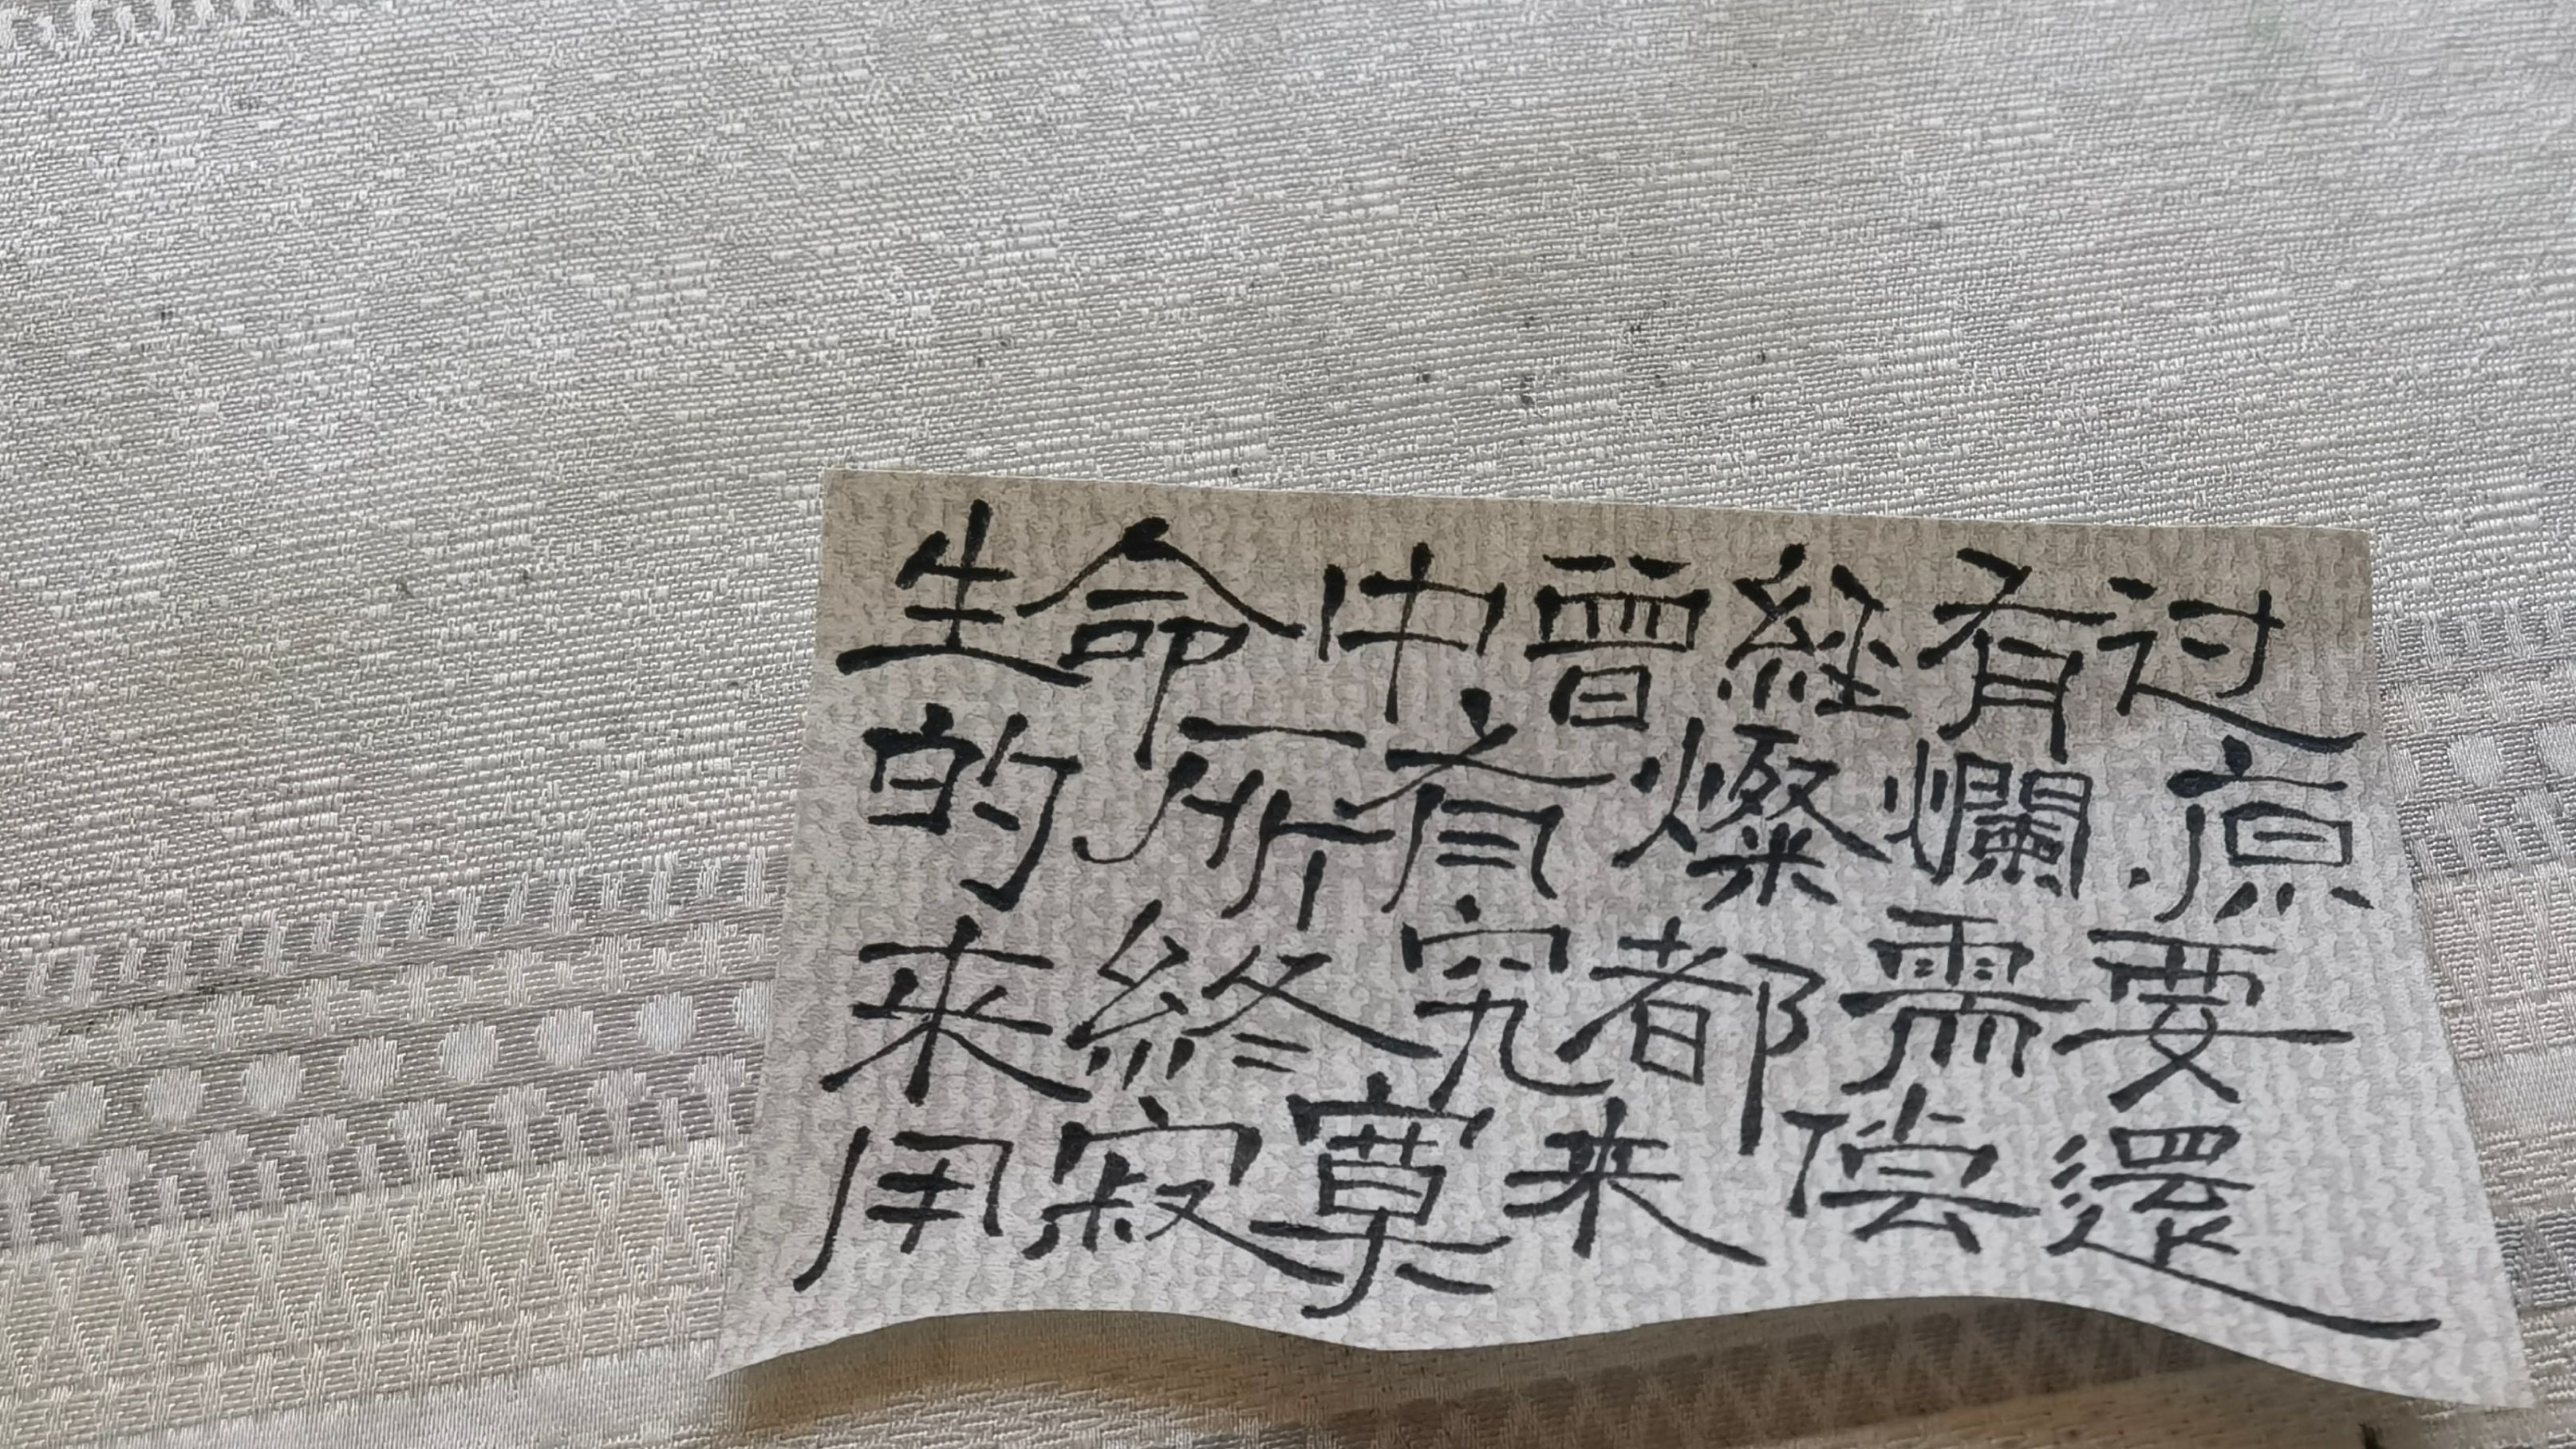 生命中曾經有过
的所有燦爛.原
来終究都需要
用寂寞来偿還